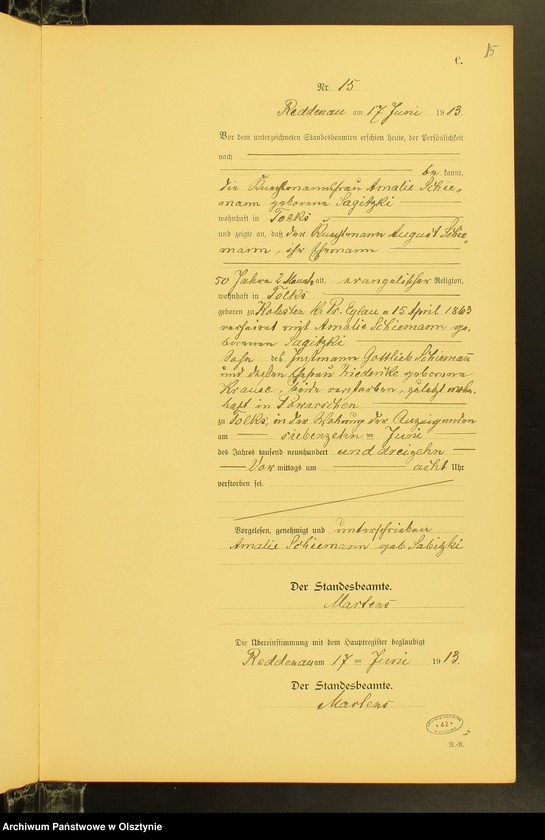 15
C.
Nr. 15
Reddenau am 17 Juni 1913.
Vor dem unterzeichneten Standesbeamten erschien heute, der Persönlichkeit
nach
be kannt,
die Kunstmannsfrau Amalie Schie-
mann geborene Sagitzki
wohnhaft in Tolks
und zeigte an, daß der August Schie-
mann, ihr Ehemann
50 Jahre 2 Monat alt, evangelischer Religion,
wohnhaft in Tolks
geboren zu Kr. Pr. Eylau a 15 April 1863
verheirat mit Amalie Schiemann ge-
borenen Sagitzki
Sohn des Instmann Gottlieb Schiemann
und dessen Ehefrau Friederike geborene
Krause, beide verstorben, zuletzt wohn-
haft in
zu Tolks, in der Wohnung der Anzeigenden
am siebenzehnten Juni
des Jahres tausend neunhundert und dreizehn
Vor mittags um acht Uhr
verstorben sei.
Vorgelesen, genehmigt und unterschrieben
Amalie Schiemann geb Sabitzki
Der Standesbeamte.
Martens
Die Übereinstimmung mit dem Hauptregister beglaubigt
Reddenau am 17 ten Juni 1913.
Der Standesbeamte.
Martens
R.-R.
Archiwum Państwowe w Olsztynie